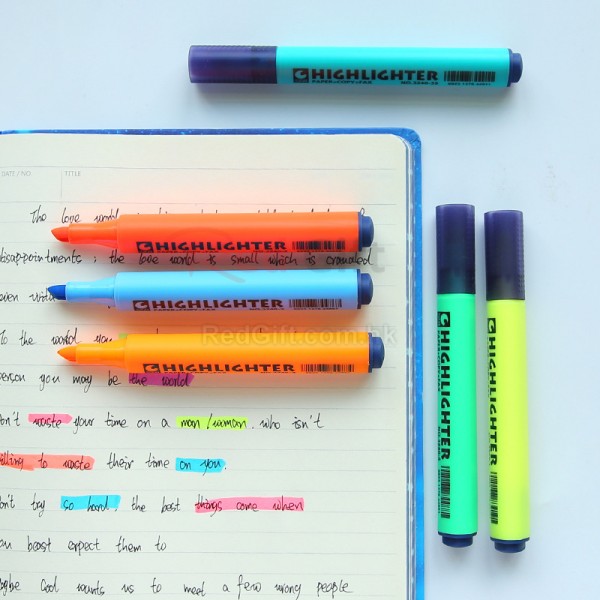 HIGHLIGHTER
PAPER•COPY•FAX
DATE / NO. TITLE
The love world
HIGHLIGHTER
disappointments ; the love world is small which is crowded
even
HIGHLIGHTER
RedGift.com.hk
To the world you
HIGHLIGHTER
person you may be the world
on't waste your time on a man/woman. who isn't
illing to waste their time on you.
on't try so hard, the best things come when
ou beast expect them to
aybe God wants us to meet a few wrong people
HIGHLIGHTER
HIGHLIGHTER